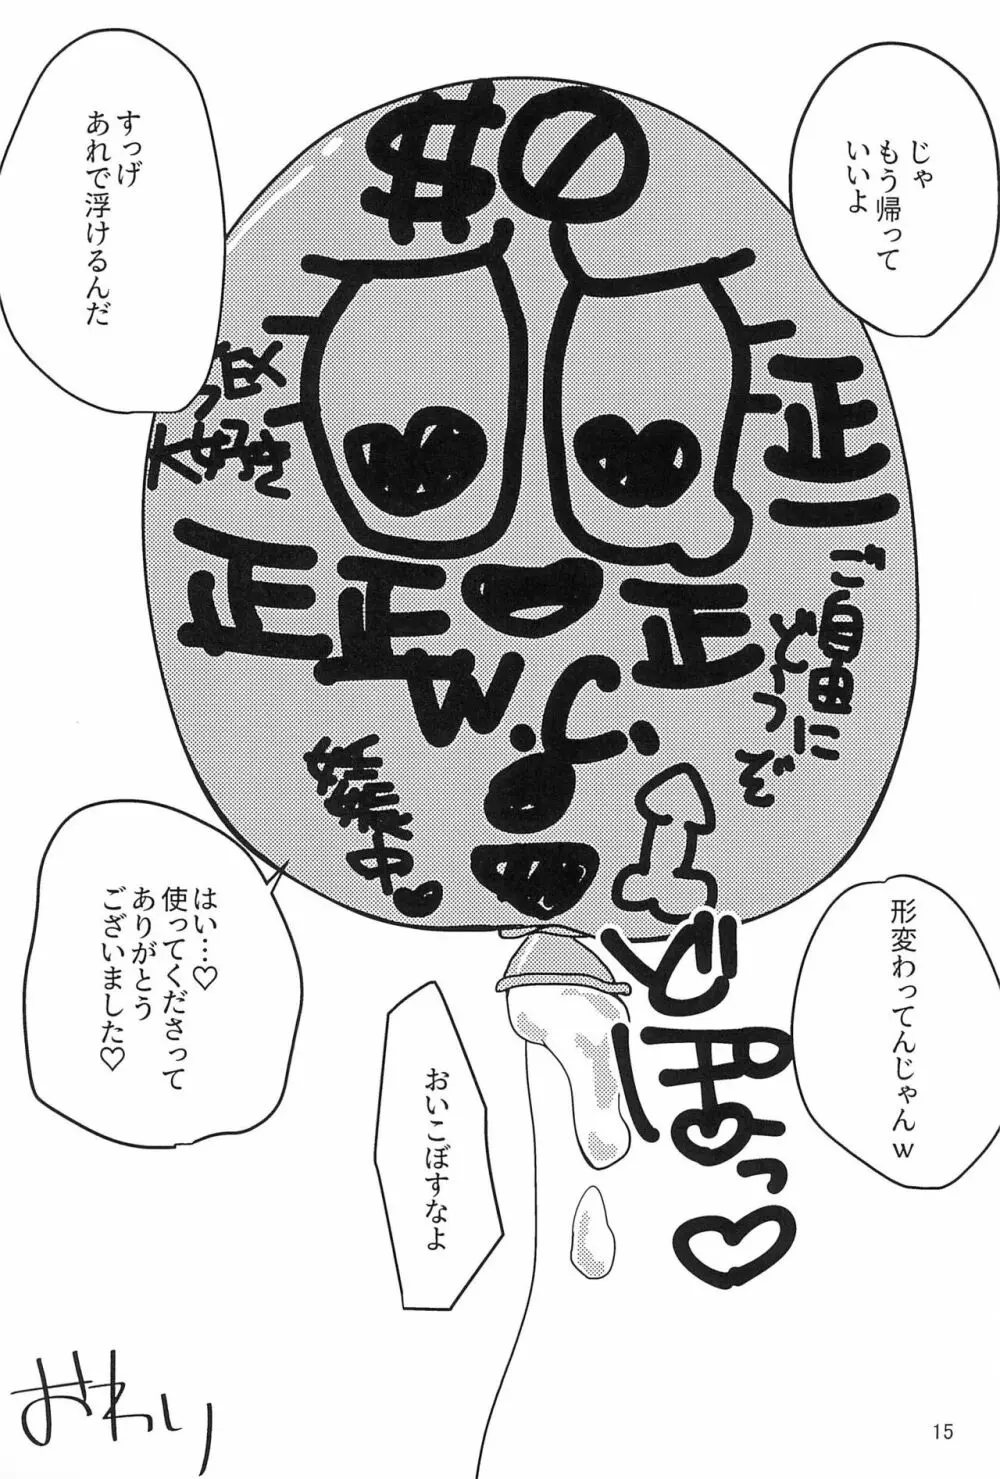 じゃ
もう帰って
いいよ
すっげ
あれで浮けるんだ
正
正
正
正
ご自由に
どうぞ
妊娠中♡
形変わってんじゃんｗ
はい…♡
使ってくださって
ありがとう
ございました♡
おいこぼすなよ
おわり
15